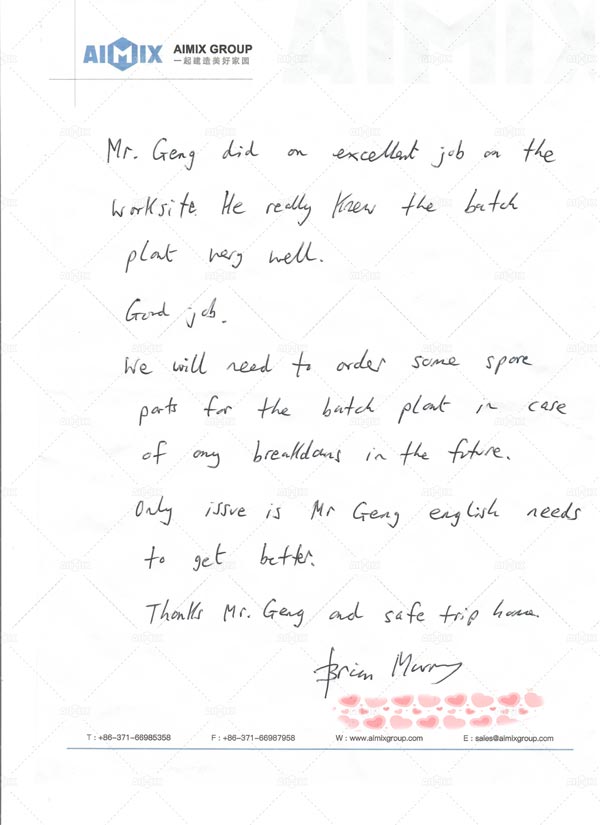 AIMIX
AIMIX GROUP
一起建造美好家园
Mr. Geng did an excellent job on the
worksite. He really knew the batch
plant very well.
Good job.
We will need to order some spare
parts for the batch plant in case
of any breakdans in the future.
Only issue is Mr Geng english needs
to get better.
Thanks Mr. Geng and safe trip home.
Brian Murray
T : +86-371-66985358 F : +86-371-66987958 W : www.aimixgroup.com E : sales@aimixgroup.com